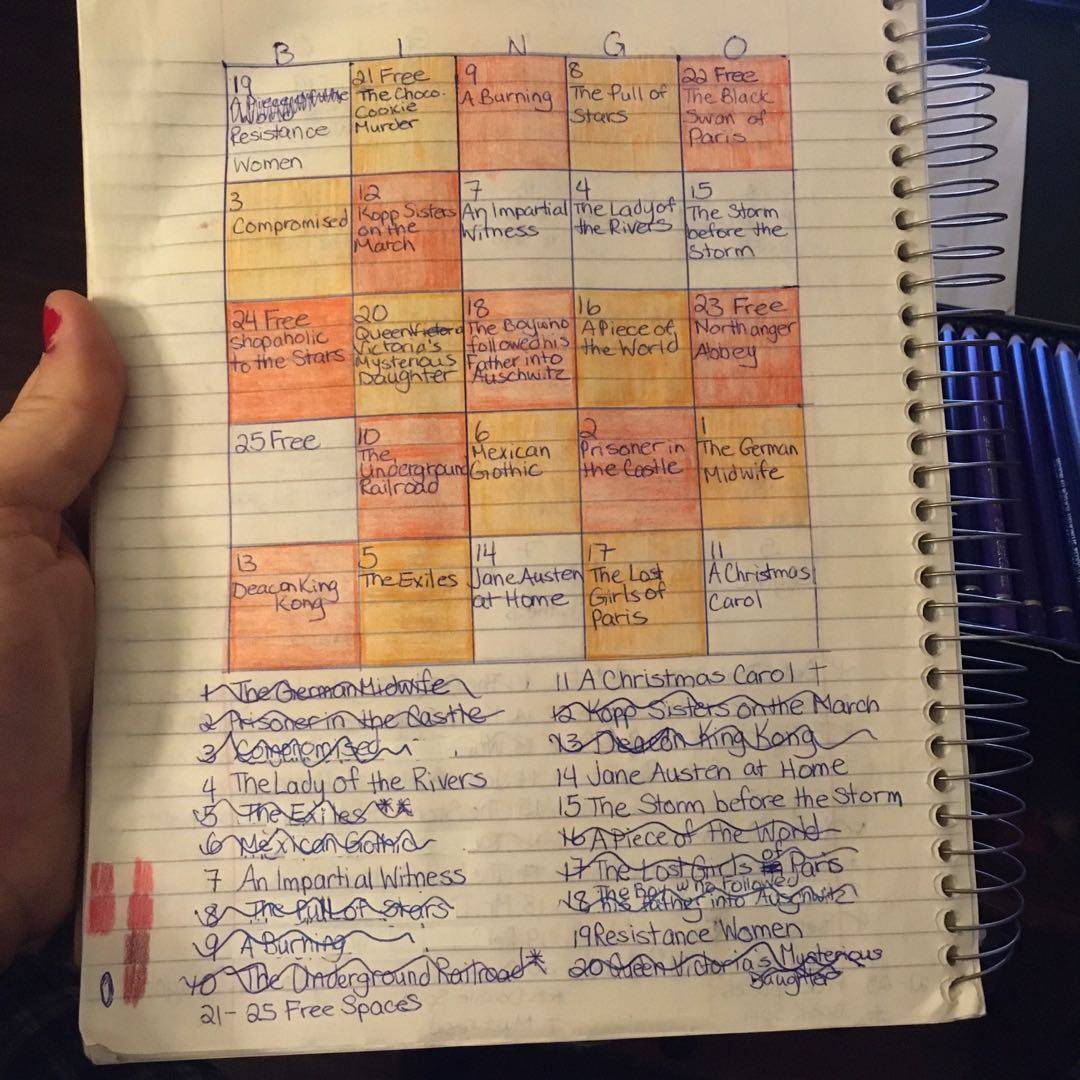 B I N G O
19
Resistance
Women
21 Free
The Choco.
Cookie
Murder
9
A Burning
8
The Pull of
Stars
22 Free
The Black
Swan of
Paris
3
Compromised
12
Kopp Sisters
on the
March
7
An Impartial
Witness
4
The Lady of
the Rivers
15
The Storm
before the
Storm
24 Free
Shopaholic
to the Stars
20
Queen Victoria
Victoria's
Mysterious
Daughter
18
The Boy who
followed his
Father into
Auschwitz
16
A Piece of
the World
23 Free
Northanger
Abbey
25 Free
10
The
Underground
Railroad
6
Mexican
Gothic
2
Prisoner in
the Castle
1
The German
Midwife
13
Deacon King
Kong
5
The Exiles
14
Jane Austen
at Home
17
The Lost
Girls of
Paris
11
A Christmas
Carol
1 The German Midwife
2 Prisoner in the Castle
3 Compromised
4 The Lady of the Rivers
5 The Exiles **
6 Mexican Gothic
7 An Impartial Witness
8 The Pull of Stars
9 A Burning
10 The Underground Railroad*
21-25 Free Spaces
11 A Christmas Carol +
12 Kopp Sisters on the March
13 Deacon King Kong
14 Jane Austen at Home
15 The Storm before the Storm
16 A Piece of the World
17 The Lost Girls of Paris
18 The Boy who Followed
his father into Auschwitz
19 Resistance Women
20 Queen Victoria's Mysterious
Daughter